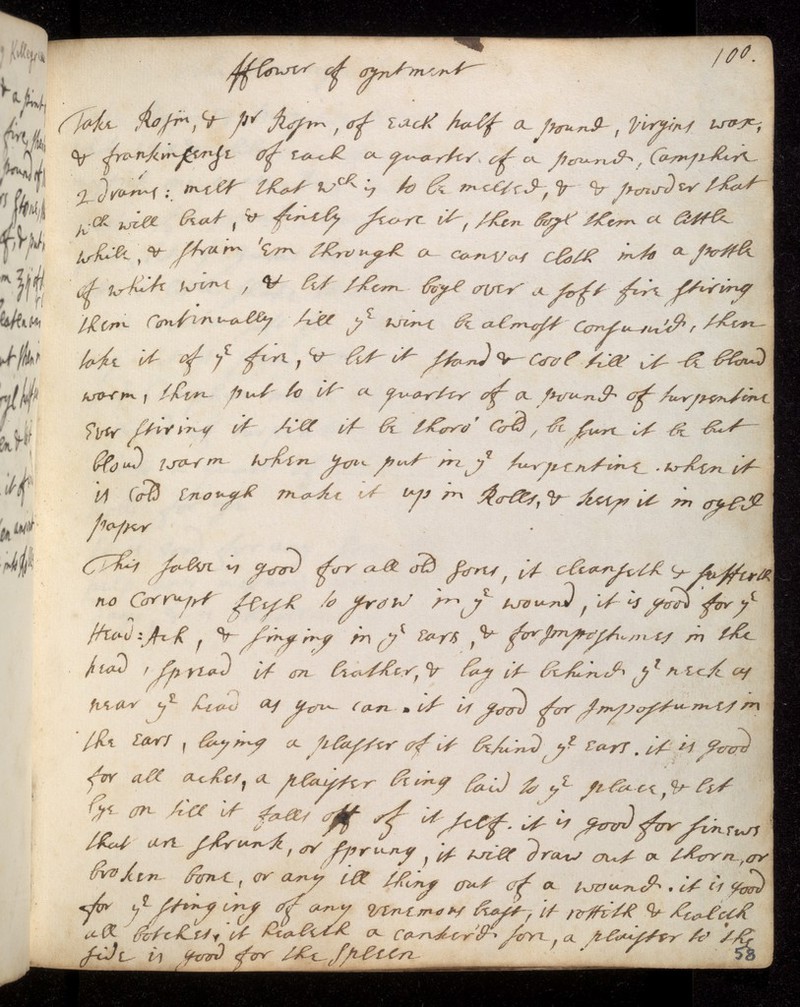 100.
fflower of oyntment
Take Rosin, & pr Rosin, of each half a pound, Virgins wax,
& frankinsense of each a quarter of a pound, Camphire
2 drams: melt that wch is to be melted, & powder that
wch will beat, & finely searc it, then boyl them a little
while, & strain 'em through a canvas cloth into a pottle
of white wine, & let them boyl over a soft fire stiring
them continually till ye wine be almost consum'd, then
take it of ye fire, & let it stand & cool till it be bloud
warm, then put to it a quarter of a pound of turpentine
ever stiring it till it be thoro' cold, be sure it be but
bloud warm when you put in ye turpentine. when it
is cold enough make it up in Rolls, & keep it in oyl'd
paper
This salve is good for all old sores, it cleanseth & suffereth
no corrupt flesh to grow in ye wound, it is good for ye
Head:Ach, & singing in ye ears, & for Impostumes in the
head, spread it on leather, & lay it behind ye neck as
near ye head as you can. it is good for Impostumes in
the ears, laying a plaster of it behind ye ears. it is good
for all aches, a plaister being laid to ye place, & let
lye on till it falls off of it self. it is good for sinews
that are shrunk, or sprung, it will draw out a thorn, or
broken bone, or any ill thing out of a wound. it is good
for ye stinging of any venemous beast, it rotteth & healeth
all botches, it healeth a canker'd sore, a plaister to the
side is good for the spleen
58